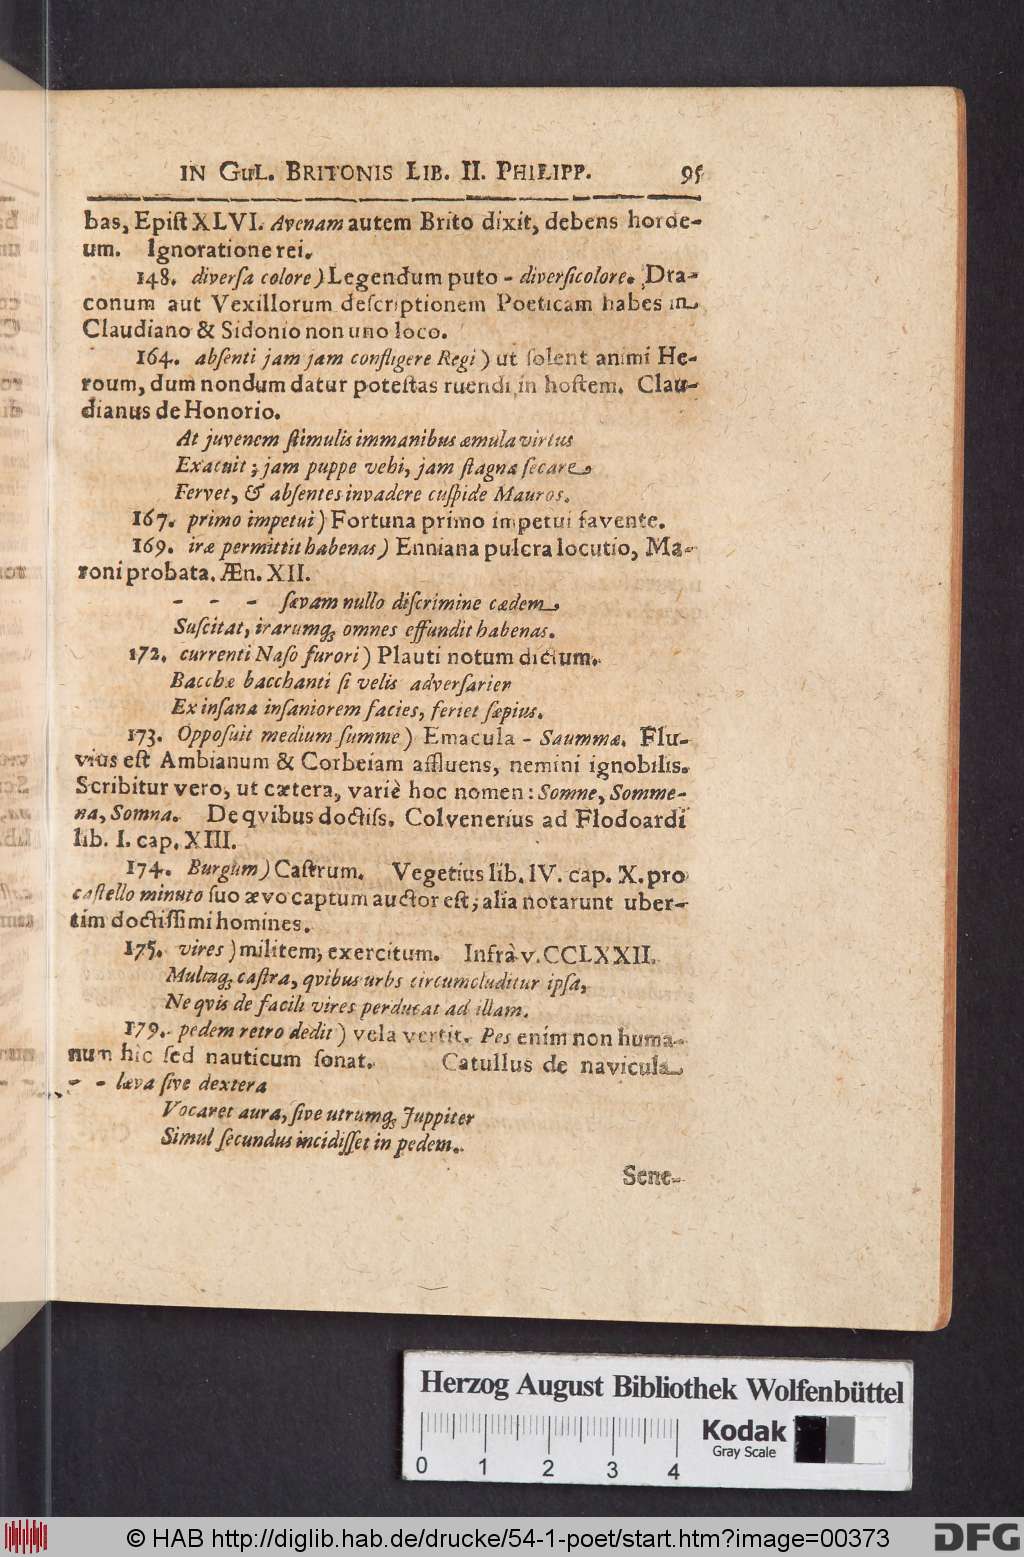 IN GUL. BRITONIS LIB. II. PHILIPP. 95
bas, Epiſt XLVI. Avenam autem Brito dixit, debens horde-
um. Ignoratione rei.
148. diverſa colore) Legendum puto - diverſicolore. Dra-
conum aut Vexillorum deſcriptionem Poeticam habes in
Claudiano & Sidonio non uno loco.
164. abſenti jam jam confligere Regi) ut ſolent animi He-
roum, dum nondum datur poteſtas ruendi in hoſtem. Clau-
dianus de Honorio.
At juvenem ſtimulis immanibus æmula virtus
Exacuit; jam puppe vehi, jam ſtagna ſecare
Fervet, & abſentes invadere cuſpide Mauros.
167. primo impetui) Fortuna primo impetui favente.
169. iræ permittit habenas) Enniana pulcra locutio, Ma-
roni probata. Æn. XII.
- - - ſævam nullo diſcrimine cædem
Suſcitat, irarumq; omnes effundit habenas.
172. currenti Naſo furori) Plauti notum dictum.
Bacchæ bacchanti ſi velis adverſarier
Ex inſana inſaniorem facies, feriet ſæpius.
173. Oppoſuit medium ſumme) Emacula - Saummæ. Flu-
vius eſt Ambianum & Corbeiam affluens, nemini ignobilis.
Scribitur vero, ut cætera, variè hoc nomen: Somne, Somme-
na, Somna. De qvibus doctiſs. Colvenerius ad Flodoardi
lib. I. cap. XIII.
174. Burgum) Caſtrum. Vegetius lib. IV. cap. X. pro
caſtello minuto ſuo ævo captum auctor eſt; alia notarunt uber-
tim doctiſſimi homines.
175. vires) militem, exercitum. Infrà v. CCLXXII.
Multaq; caſtra, qvibus urbs circumcluditur ipſa,
Ne qvis de facili vires perducat ad illam.
179. pedem retro dedit) vela vertit. Pes enim non huma-
num hic ſed nauticum ſonat. Catullus de navicula
- - læva ſive dextera
Vocaret aura, ſive utrumq; Juppiter
Simul ſecundus incidiſſet in pedem.
Sene-
Herzog August Bibliothek Wolfenbüttel
Kodak
Gray Scale
0 1 2 3 4
© HAB http://diglib.hab.de/drucke/54-1-poet/start.htm?image=00373
DFG